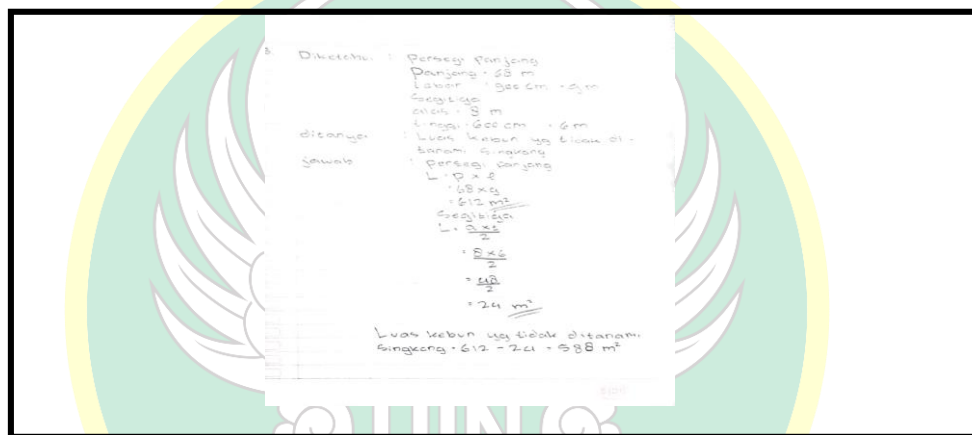 3. Diketahui : Persegi Panjang
Panjang = 68 m
Lebar = 900 cm = 9 m
Segitiga
alas = 8 m
tinggi = 600 cm = 6 m
ditanya : Luas kebun yg tidak di-
tanami singkong
Jawab : Persegi Panjang
L = P x l
= 68 x 9
= 612 m²
Segitiga
L = a x t
2
= 8 x 6
2
= 48
2
= 24 m²
Luas kebun yg tidak ditanami
Singkong = 612 - 24 = 588 m²